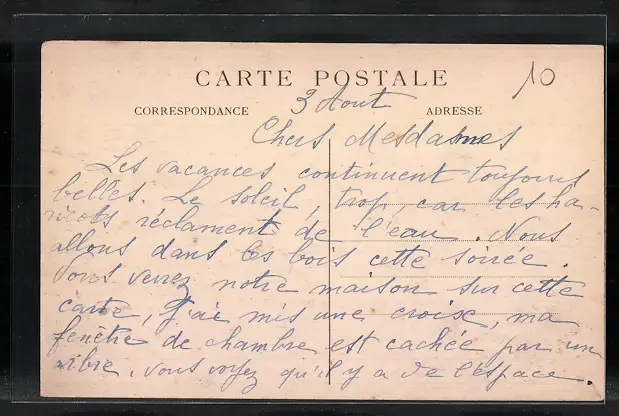 CARTE POSTALE
10
3 Aout
CORRESPONDANCE
ADRESSE
Chers Mesdames
Les vacances continuent toujours
belles. Le soleil, trop, car les ha-
ricots réclament de l'eau. Nous
allons dans les bois cette soirée.
Vous verrez notre maison sur cette
carte, j'ai mis une croix, ma
fenêtre de chambre est cachée par un
arbre. Vous voyez qu'il y a de l'espace.